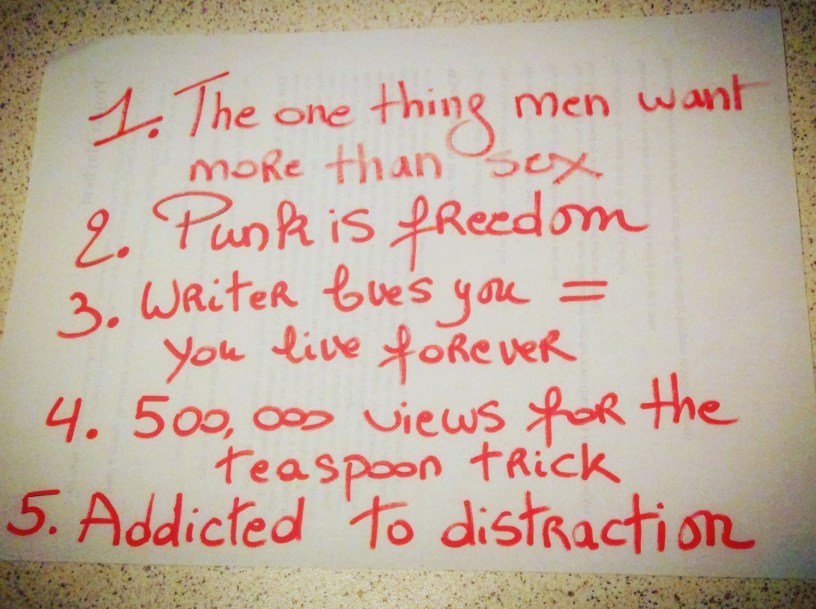 1. The one thing men want
more than sex
2. Punk is freedom
3. Writer loves you =
you live forever
4. 500,000 views for the
teaspoon trick
5. Addicted to distraction